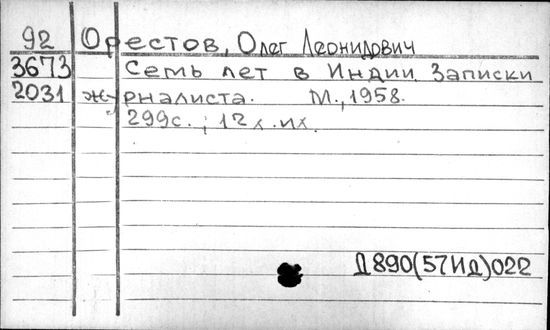 92 Орестов, Олег Леонидович
3673 Семь лет в Индии. Записки
2031 журналиста. М., 1958.
299с.; 12л. ил.
Д890(57Ид)022